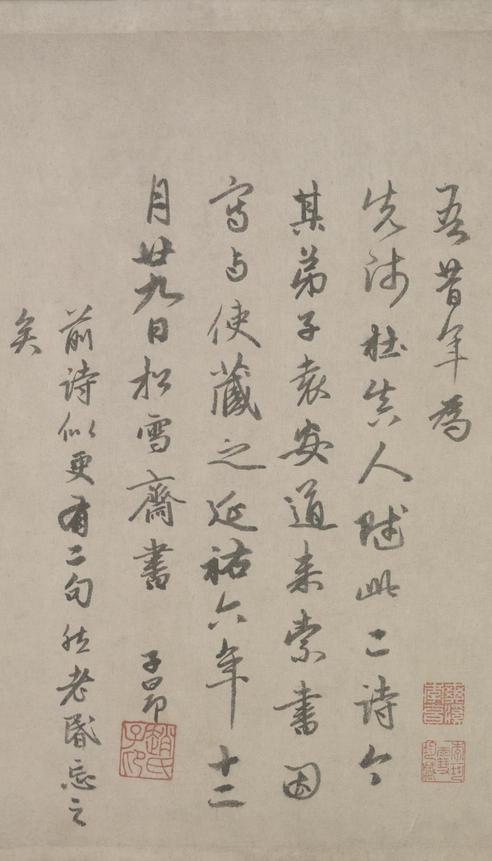 吾昔年爲
先師杜真人賦此二詩今
其弟子袁安道来索書因
寫与使藏之延祐六年十二
月廿九日松雪齋書 子昂
前詩似更有二句然老昏忘之
矣
趙氏子昂